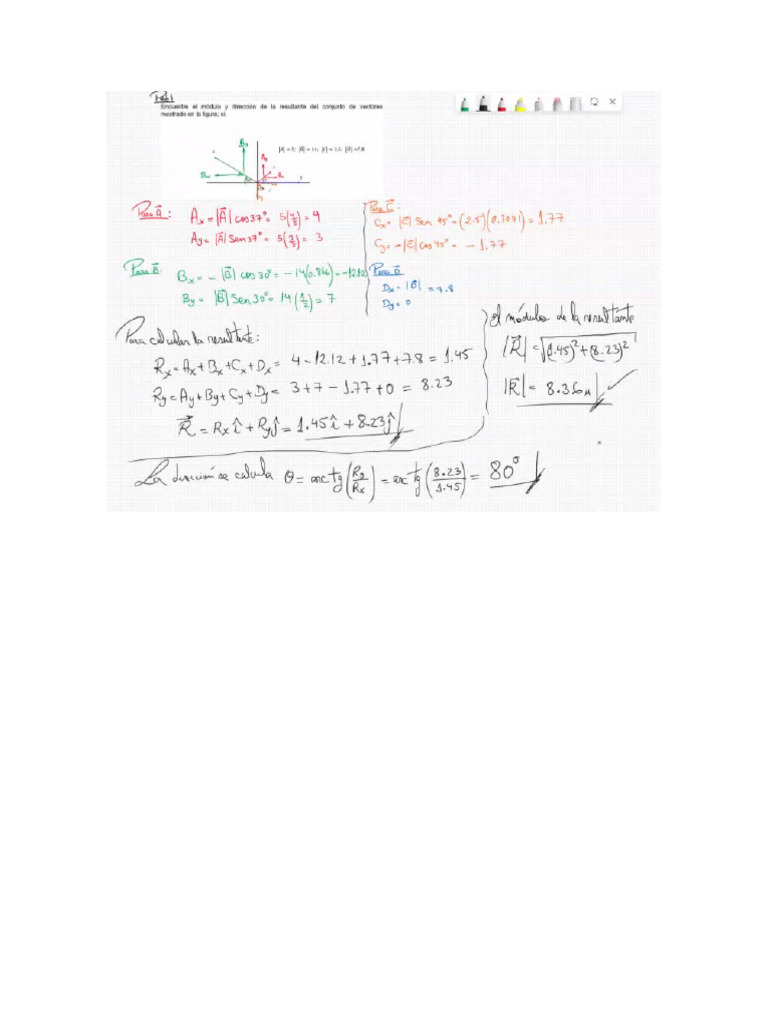 Encuentre el módulo y dirección de la resultante del conjunto de vectores
mostrado en la figura; si
|A| = 5; |B| = 14; |C| = 2,5; |D| = 7.8
By
Bx
Ay
Ax
Para A⃗:
Ax = |A⃗| cos37° = 5(4/5) = 4
Ay = |A⃗| Sen37° = 5(3/5) = 3
Para C⃗:
Cx = |C⃗| sen 45° = (2.5)(0.7071) = 1.77
Cy = -|C⃗| cos 45° = -1.77
Para B⃗:
Bx = -|B⃗| cos30° = -14(0.866) = -12.12
By = |B⃗| Sen30° = 14(1/2) = 7
Para D⃗
Dx = |D⃗| = 7.8
Dy = 0
Para calcular la resultante:
Rx = Ax + Bx + Cx + Dx = 4 - 12.12 + 1.77 + 7.8 = 1.45
Ry = Ay + By + Cy + Dy = 3 + 7 - 1.77 + 0 = 8.23
R⃗ = Rx î + Ry ĵ = 1.45 î + 8.23 ĵ
El módulo de la resultante
|R⃗| = √(1.45)² + (8.23)²
|R⃗| = 8.356 u
La dirección se calcula θ = arctg(Ry/Rx) = arctg(8.23/1.45) = 80°